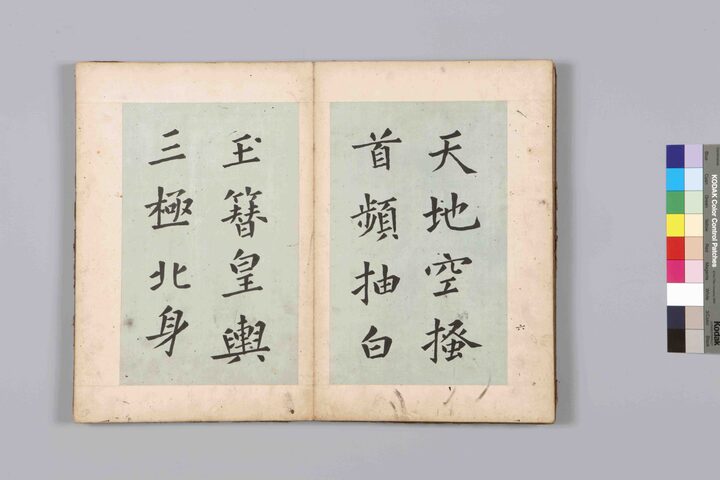 天地空搔
首頻抽白
玉簪皇輿
三極北身
六
KODAK Color Control Patches
Kodak